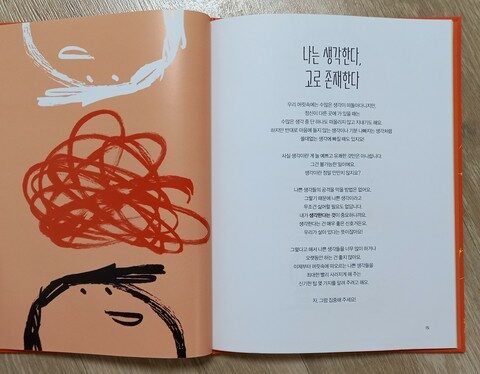 나는 생각한다,
고로 존재한다
우리 머릿속에는 수많은 생각이 떠돌아다니지만,
정신이 다른 곳에 가 있을 때는
수많은 생각 중 단 하나도 떠올리지 않고 지내기도 해요.
하지만 반대로 마음에 들지 않는 생각이나 기분 나빠지는 생각처럼
쓸데없는 생각에 빠질 때도 있지요!
사실 생각이란 게 늘 예쁘고 유쾌한 것만은 아니랍니다.
그건 불가능한 일이에요.
생각이란 정말 만만치 않지요?
나쁜 생각들의 공격을 막을 방법은 없어요.
그렇기 때문에 나쁜 생각이라고
무조건 싫어할 필요도 없답니다.
내가 생각한다는 것이 중요하니까요.
생각한다는 건 매우 좋은 신호거든요.
우리가 살아 있다는 뜻이잖아요!
그렇다고 해서 나쁜 생각들을 너무 많이 하거나
오랫동안 하는 건 좋지 않아요.
이제부터 머릿속에 떠오르는 나쁜 생각들을
최대한 빨리 사라지게 해 주는
신기한 팁 몇 가지를 알려 주려고 해요.
자, 그럼 집중해 주세요!